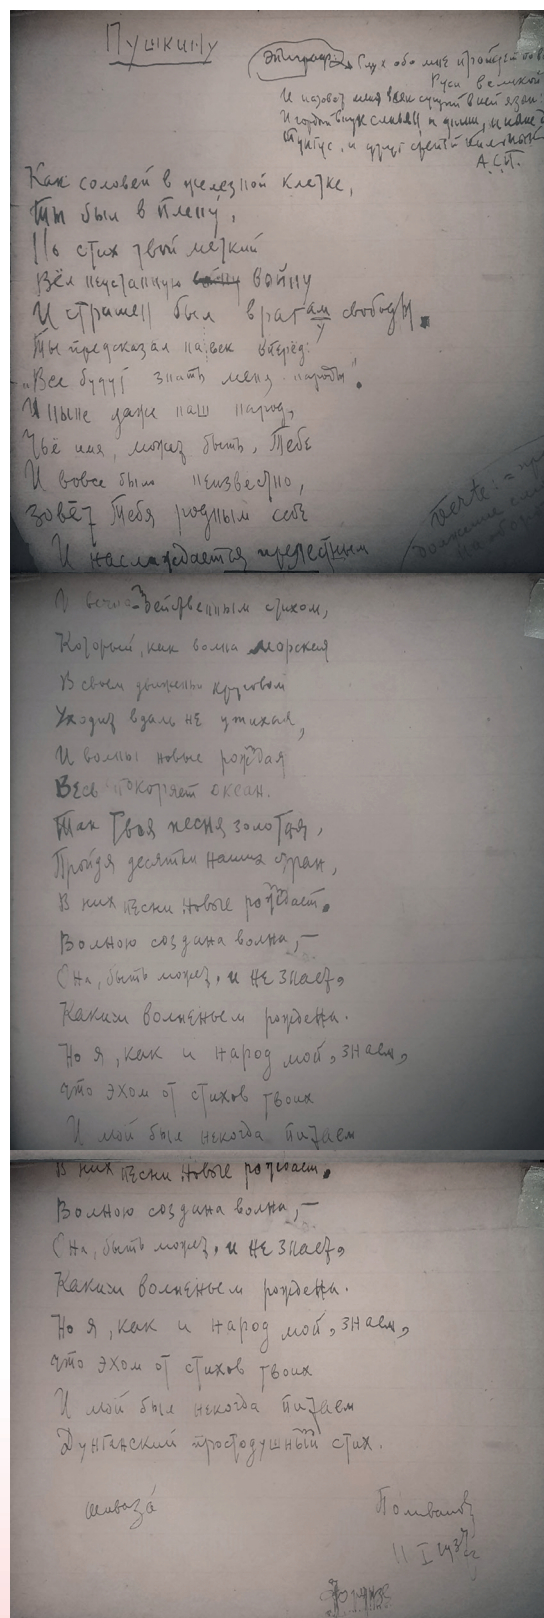 Пушкину
Эпиграф: Слух обо мне пройдет по всей
Руси великой
И назовет меня всяк сущий в ней язык:
И гордый внук славян и финн, и ныне д
Тунгус, и друг степей калмык
А.С.П.
Как соловей в железной клетке,
Ты был в плену,
Но стих твой меткий
Вёл неустанную войну войну
И страшен был врагам свободы.
у
Ты предсказал на век вперёд:
"Все будут знать меня народы".
И ныне даже наш народ,
Чьё имя, может быть, Тебе
И вовсе было неизвестно,
Зовёт Тебя родным себе
И наслаждается прелестным
verte: = про
должение сле
на оборо
И вечно-действенным стихом,
Который, как волна морская
В своем движеньи круговом
Уходит вдаль не утихая,
И волны новые рождая
Весь покоряет океан.
Так Твоя песня золотая,
Пройдя десятки наших стран,
В них песни новые рождает.
Волною создана волна, —
Она, быть может, и не знает,
Каким волненьем рождена.
Но я, как и народ мой, знаем,
Что эхом от стихов твоих
И мой был некогда питаем
В них песни новые рождает.
Волною создана волна, —
Она, быть может, и не знает,
Каким волненьем рождена.
Но я, как и народ мой, знаем,
Что эхом от стихов твоих
И мой был некогда питаем
Дунганский простодушный стих.
Шиваза
Поливанов
11 I 1937
Фрунзе